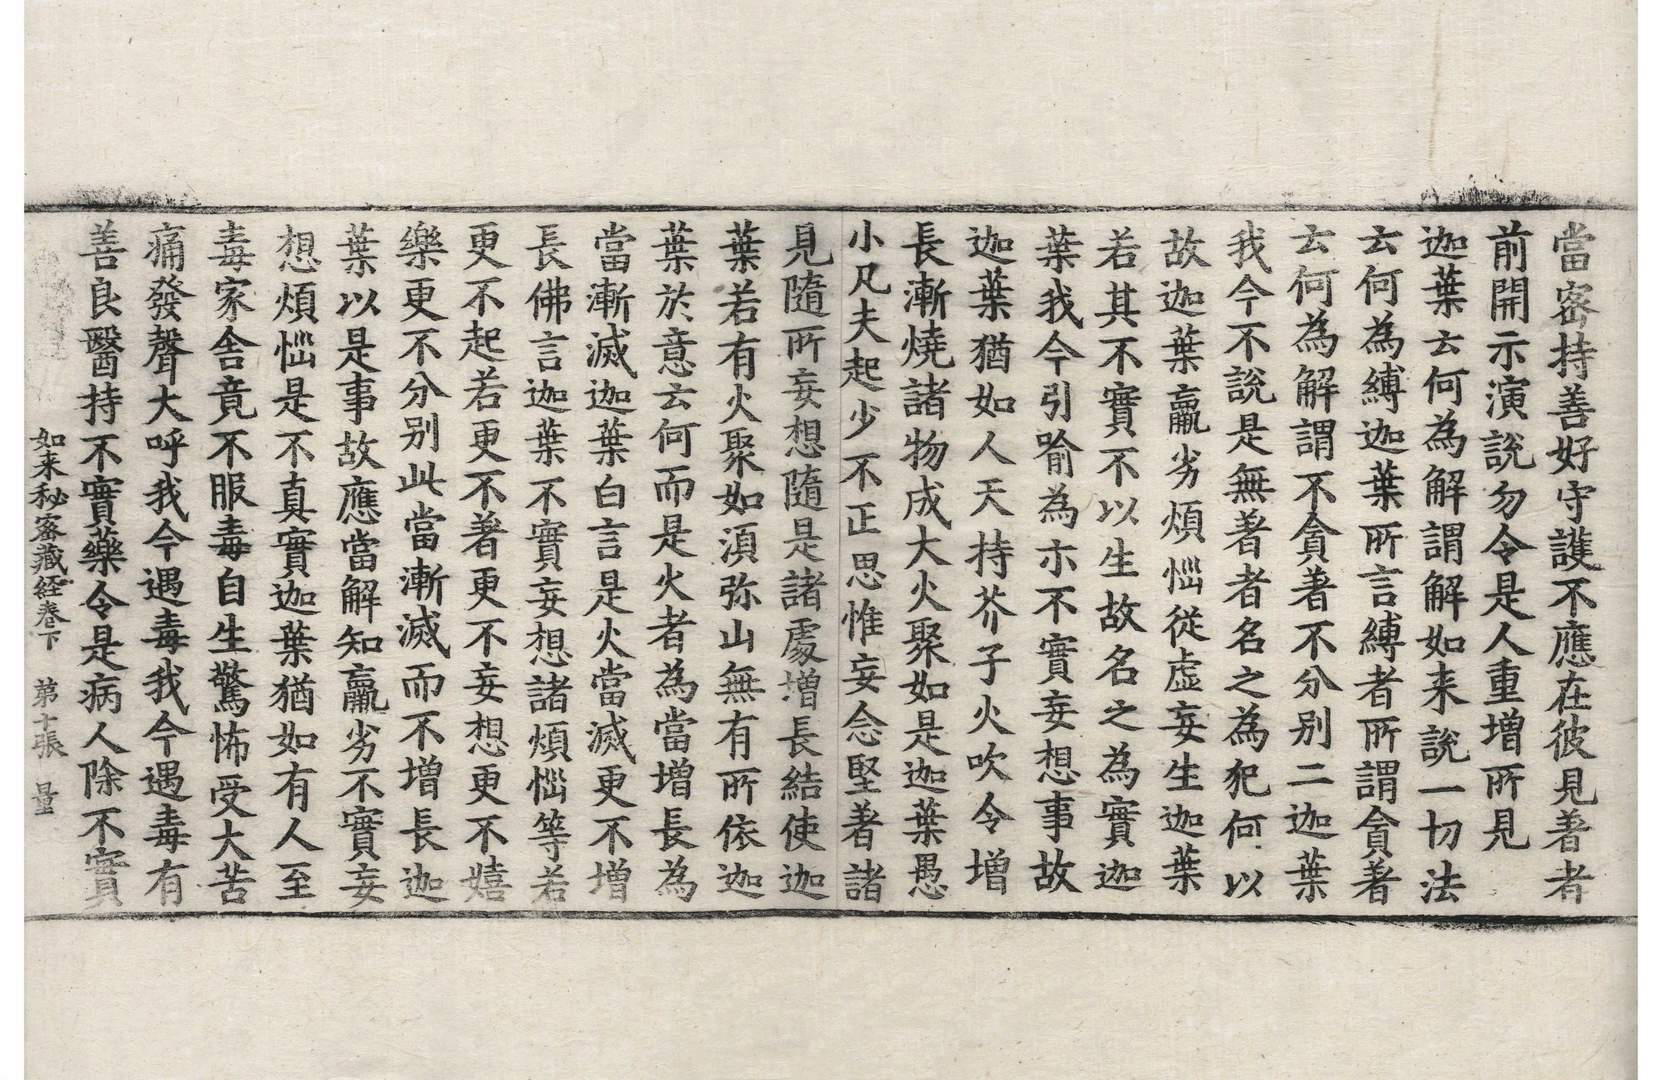 當密持善好守護不應在彼見著者
前開示演說勿令是人重增所見
迦葉云何為解謂解如来說一切法
云何為縛迦葉所言縛者所謂貪著
云何為解謂不貪著不分别二迦葉
我今不說是無著者名之為犯何以
故迦葉羸劣煩惱從虛妄生迦葉
若其不實不以生故名之為實迦
葉我今引喻為亦不實妄想事故
迦葉猶如人天持芥子火吹令增
長漸燒諸物成大火聚如是迦葉愚
小凡夫起少不正思惟妄念堅著諸
見隨所妄想隨是諸處增長結使迦
葉若有火聚如湏弥山無有所依迦
葉於意云何而是火者為當增長為
當漸滅迦葉白言是火當滅更不增
長佛言迦葉不實妄想諸煩惱等若
更不起若更不著更不妄想更不嬉
樂更不分别此當漸滅而不增長迦
葉以是事故應當解知羸劣不實妄
想煩惱是不真實迦葉猶如有人至
毒家舍竟不服毒自生驚怖受大苦
痛發聲大呼我今遇毒我今遇毒有
善良醫持不實藥令是病人除不實
如来秘密藏經卷下 第十張 量